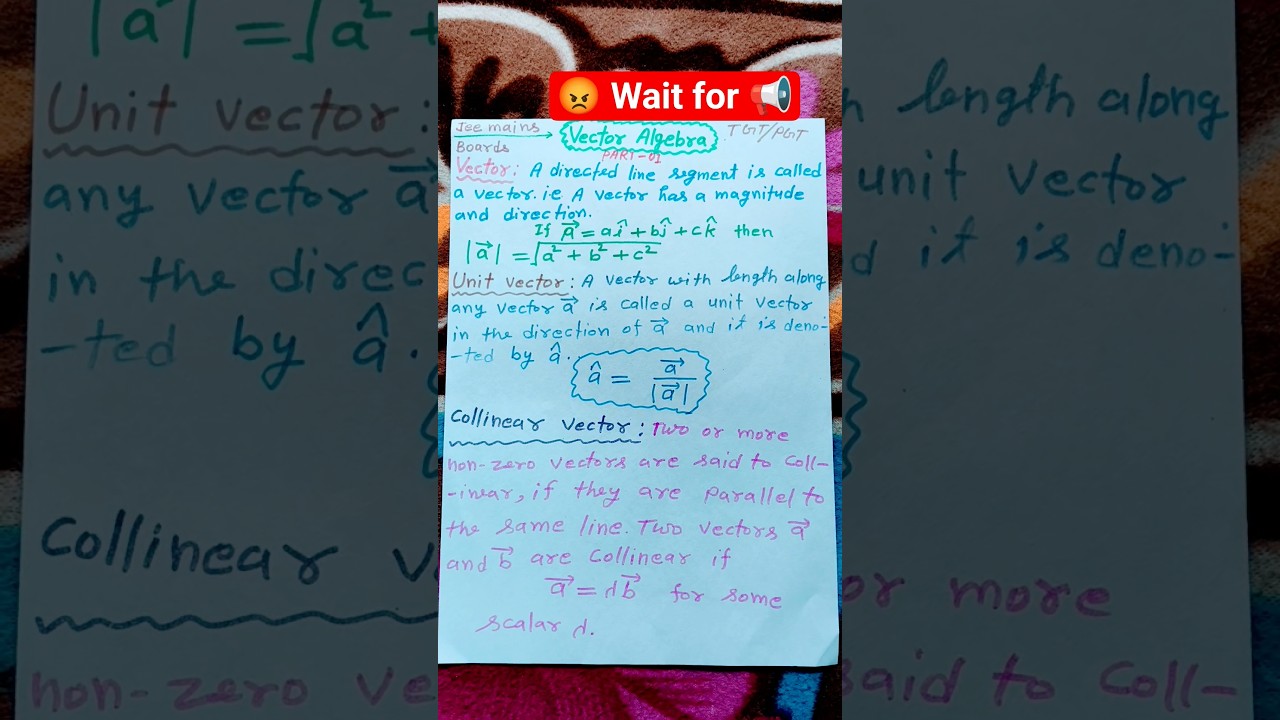 😡 Wait for 📢
Jee mains
Boards
Vector Algebra
TGT/PGT
PART-01
Vector: A directed line segment is called
a vector. i.e A vector has a magnitude
and direction.
If a⃗ = aî + bĵ + ck̂ then
|a⃗| = √a² + b² + c²
Unit vector: A vector with length along
any vector a⃗ is called a unit vector
in the direction of a⃗ and it is deno-
-ted by â.
â = a⃗ / |a⃗|
Collinear vector: Two or more
non-zero vectors are said to coll-
-inear, if they are parallel to
the same line. Two vectors a⃗
and b⃗ are collinear if
a⃗ = λb⃗ for some
scalar λ.